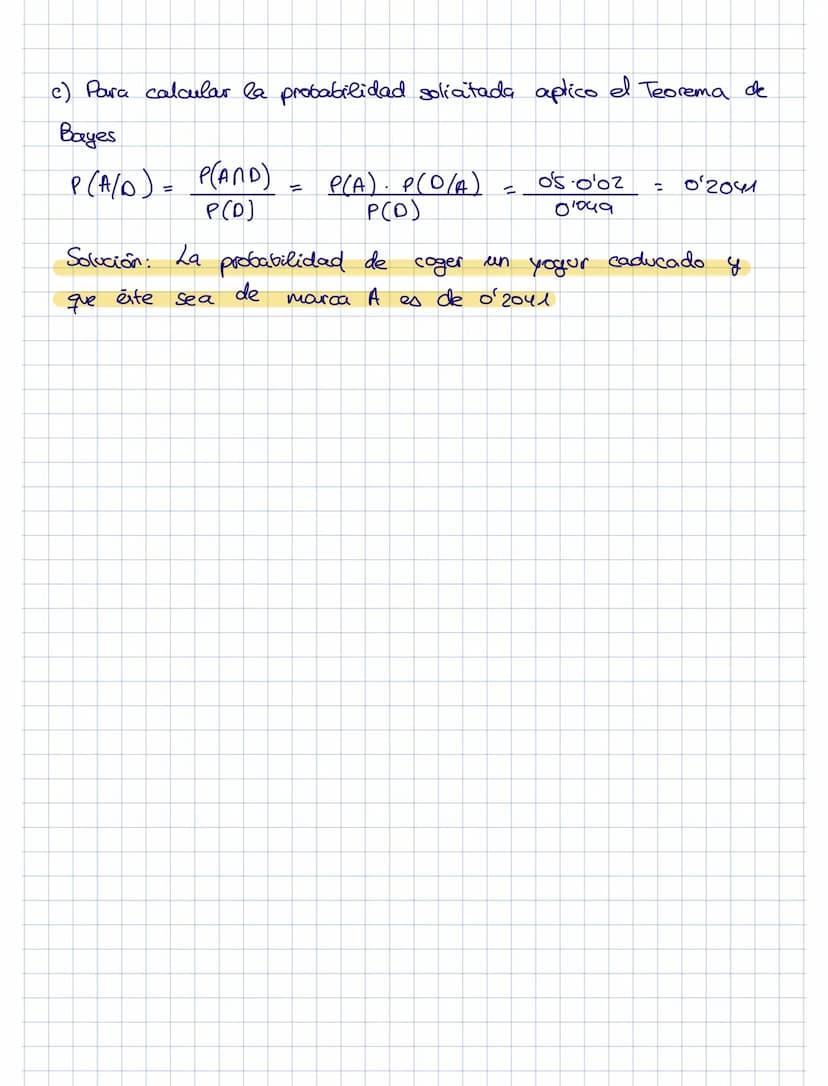 c) Para calcular la probabilidad solicitada aplico el Teorema de
Bayes
P(A/D) = P(A∩D) / P(D) = P(A) · P(D/A) / P(D) = 0'5 · 0'02 / 0'049 = 0'2041
Solución: La probabilidad de coger un yogur caducado y
que éste sea de marca A es de 0'2041